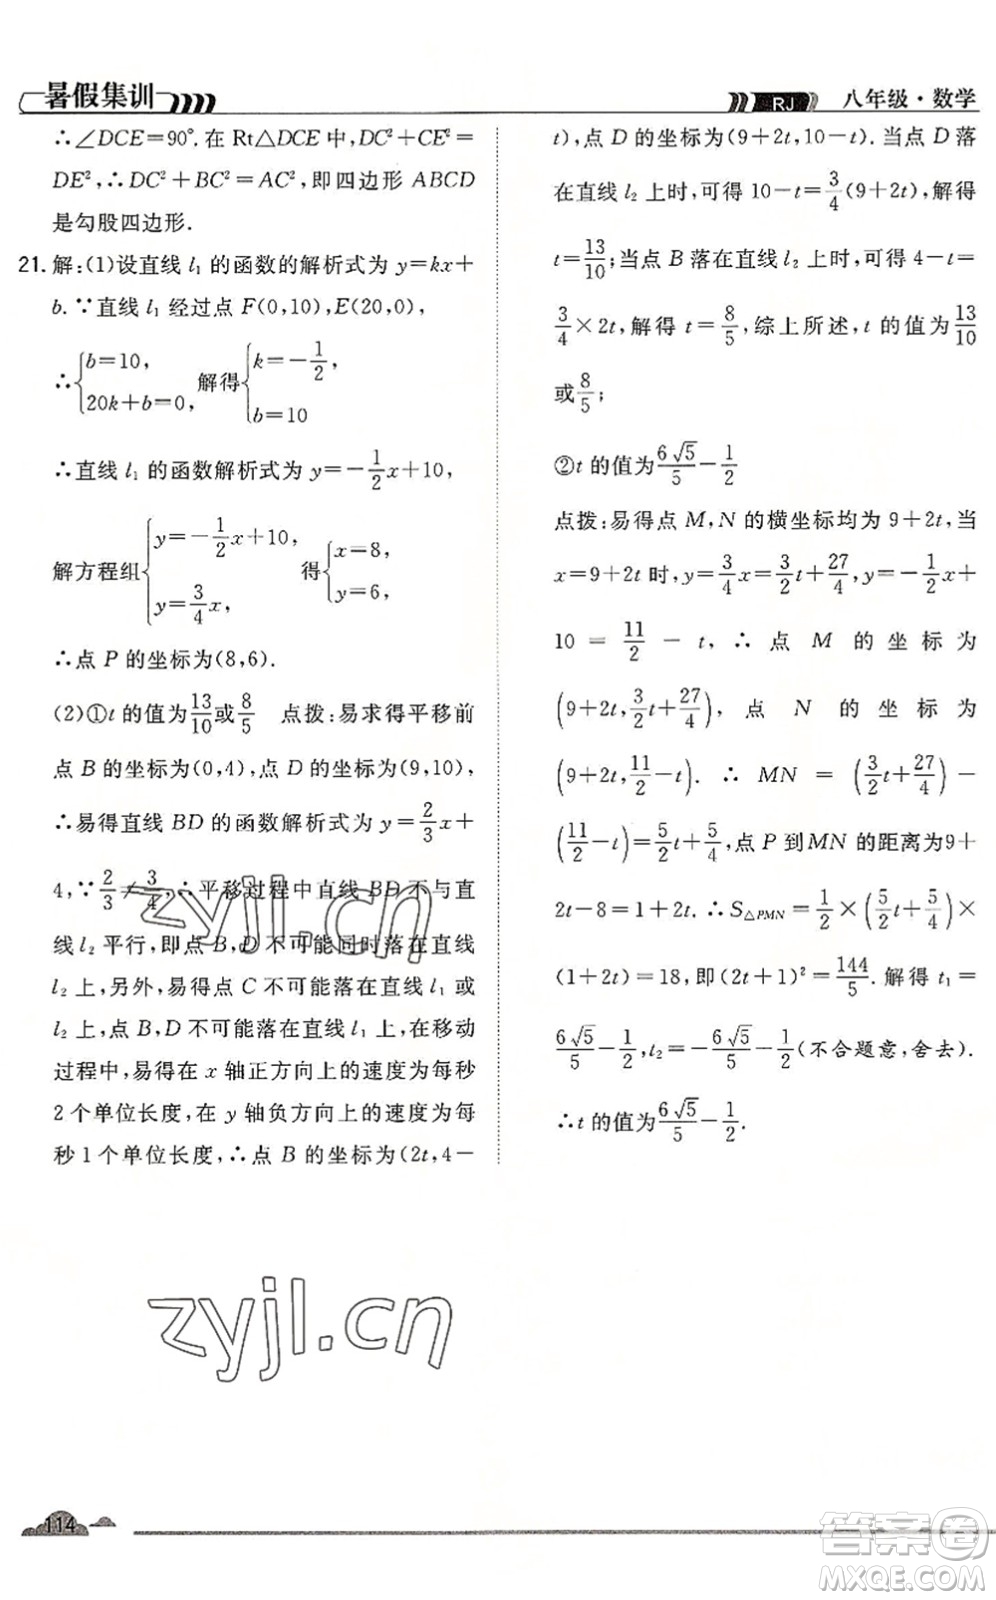 暑假集训
RJ 八年级·数学
∴∠DCE=90°.在 Rt△DCE 中,DC²+CE²=
DE²,∴DC²+BC²=AC²,即四边形 ABCD
是勾股四边形.
21.解:(1)设直线 l₁ 的函数的解析式为 y=kx+
b.∵直线 l₁ 经过点 F(0,10),E(20,0),
∴{b=10, 20k+b=0, 解得{k=-1/2, b=10
∴直线 l₁ 的函数解析式为 y=-1/2x+10,
解方程组{y=-1/2x+10, y=3/4x, 得{x=8, y=6,
∴点 P 的坐标为(8,6).
(2)①t 的值为13/10或8/5 点拨:易求得平移前
点 B 的坐标为(0,4),点 D 的坐标为(9,10),
∴易得直线 BD 的函数解析式为 y=2/3x+
4,∵2/3≠3/4,∴平移过程中直线 BD 不与直
线 l₂ 平行,即点 B,D 不可能同时落在直线
l₂ 上,另外,易得点 C 不可能落在直线 l₁ 或
l₂ 上,点 B,D 不可能落在直线 l₁ 上,在移动
过程中,易得在 x 轴正方向上的速度为每秒
2 个单位长度,在 y 轴负方向上的速度为每
秒 1 个单位长度,∴点 B 的坐标为(2t,4-
t),点 D 的坐标为(9+2t,10-t).当点 D 落
在直线 l₂ 上时,可得 10-t=3/4(9+2t),解得
t=13/10;当点 B 落在直线 l₂ 上时,可得 4-t=
3/4×2t,解得 t=8/5,综上所述,t 的值为13/10
或8/5;
②t 的值为6√5/5-1/2
点拨:易得点 M,N 的横坐标均为 9+2t,当
x=9+2t 时,y=3/4x=3/2t+27/4,y=-1/2x+
10=11/2-t,∴点 M 的坐标为
(9+2t,3/2t+27/4),点 N 的坐标为
(9+2t,11/2-t).∴MN=(3/2t+27/4)-
(11/2-t)=5/2t+5/4,点 P 到MN 的距离为9+
2t-8=1+2t.∴S△PMN=1/2×(5/2t+5/4)×
(1+2t)=18,即(2t+1)²=144/5.解得 t₁=
6√5/5-1/2,t₂=-6√5/5-1/2(不合题意,舍去).
∴t 的值为6√5/5-1/2.
zyjl.cn
zyjl.cn
114
答案圈
MXQE.COM